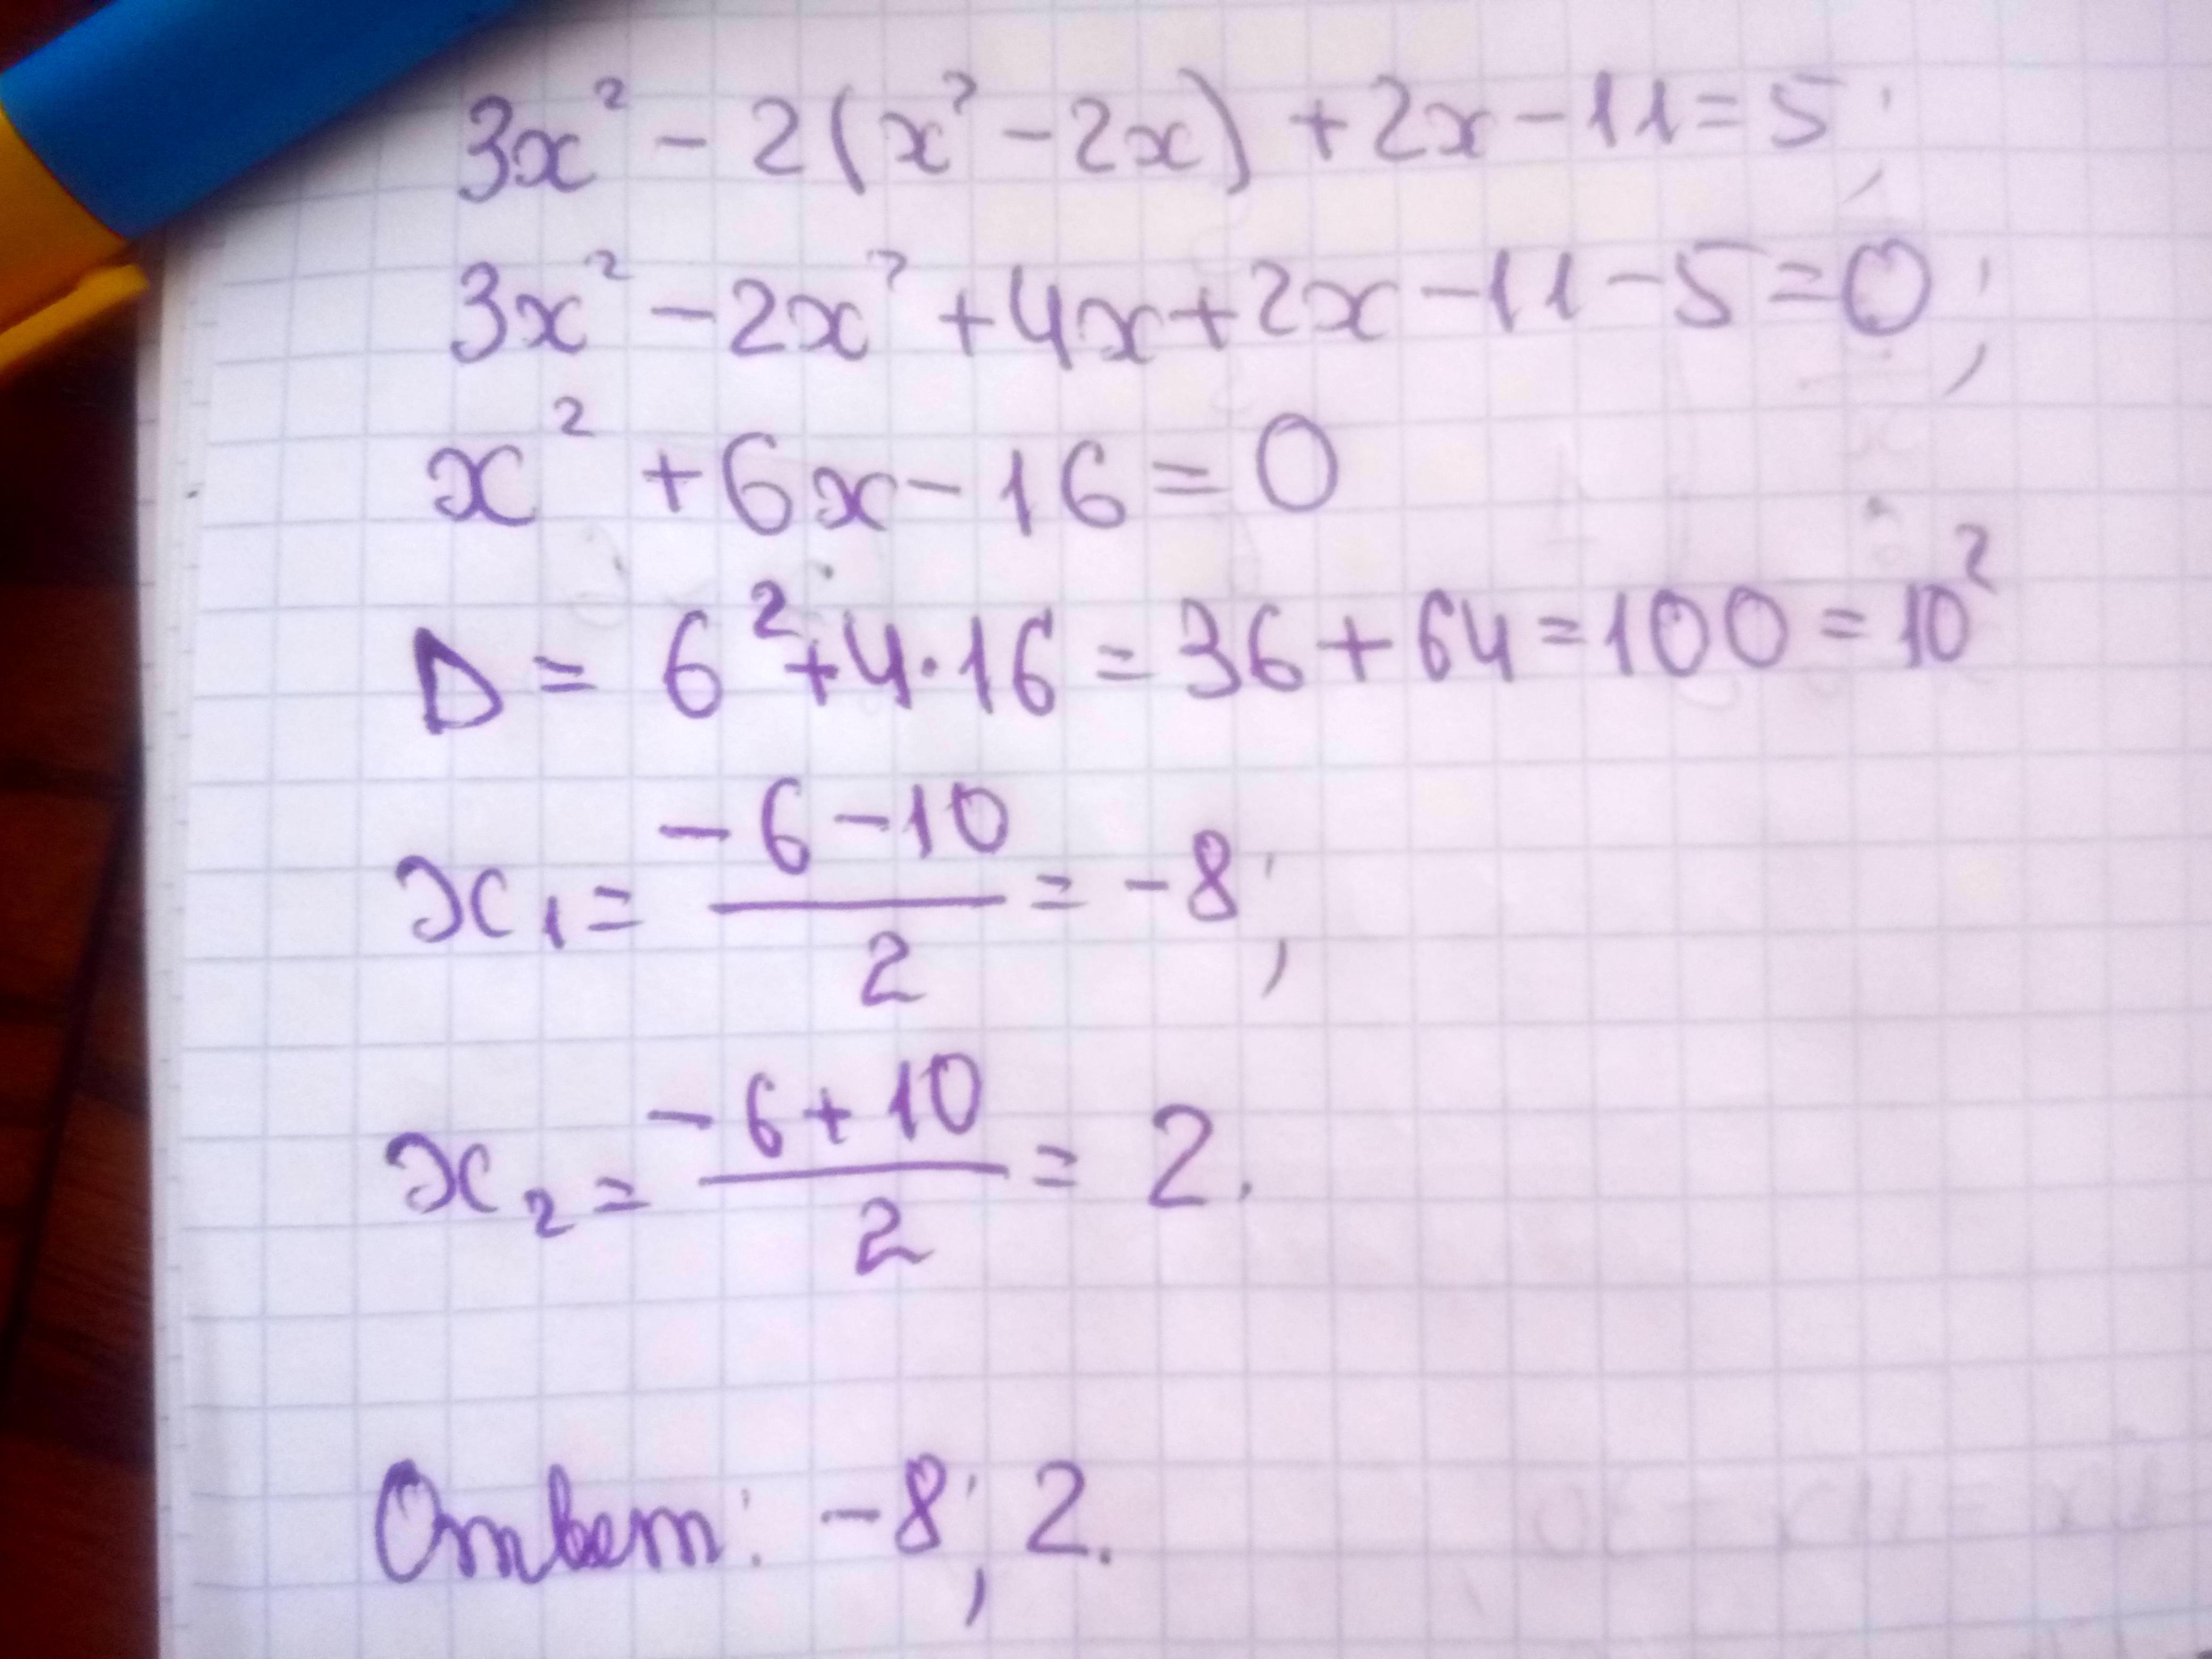 3x² - 2(x² - 2x) + 2x - 11 = 5;
3x² - 2x² + 4x + 2x - 11 - 5 = 0;
x² + 6x - 16 = 0
D = 6² + 4·16 = 36 + 64 = 100 = 10²
x₁ = (-6 - 10)/2 = -8;
x₂ = (-6 + 10)/2 = 2.
Ответ: -8; 2.